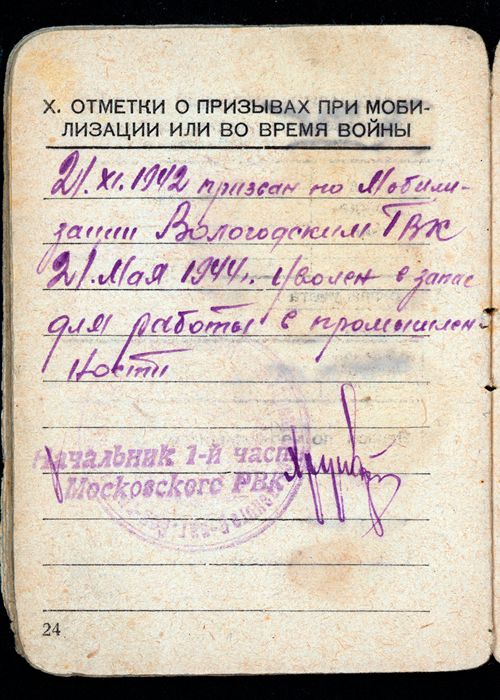 X. ОТМЕТКИ О ПРИЗЫВАХ ПРИ МОБИ-
ЛИЗАЦИИ ИЛИ ВО ВРЕМЯ ВОЙНЫ
21.XI.1942 призван по Мобили-
зации Вологодским ГВК
21.Мая 1944г. Уволен в запас
для работы в промышлен-
ности
Начальник 1-й части
Московского РВК
24